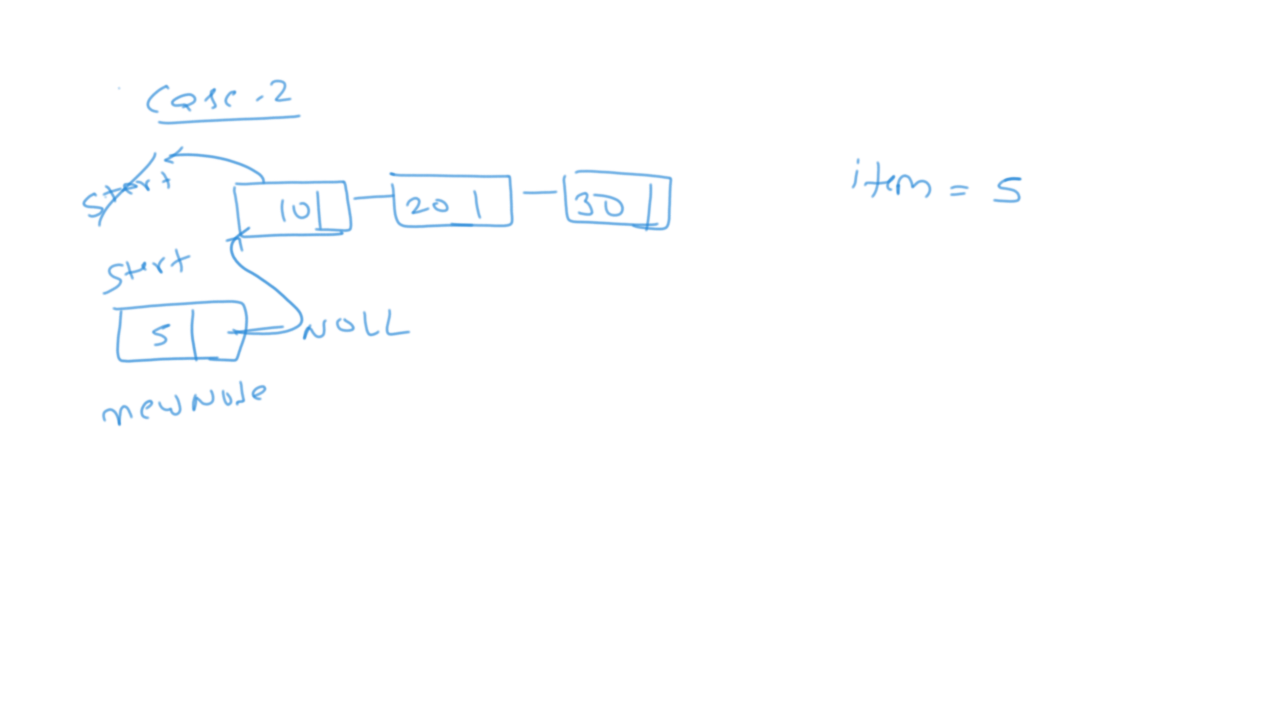 Case.2
start
10 20 30
item = 5
start
5 NULL
newNode